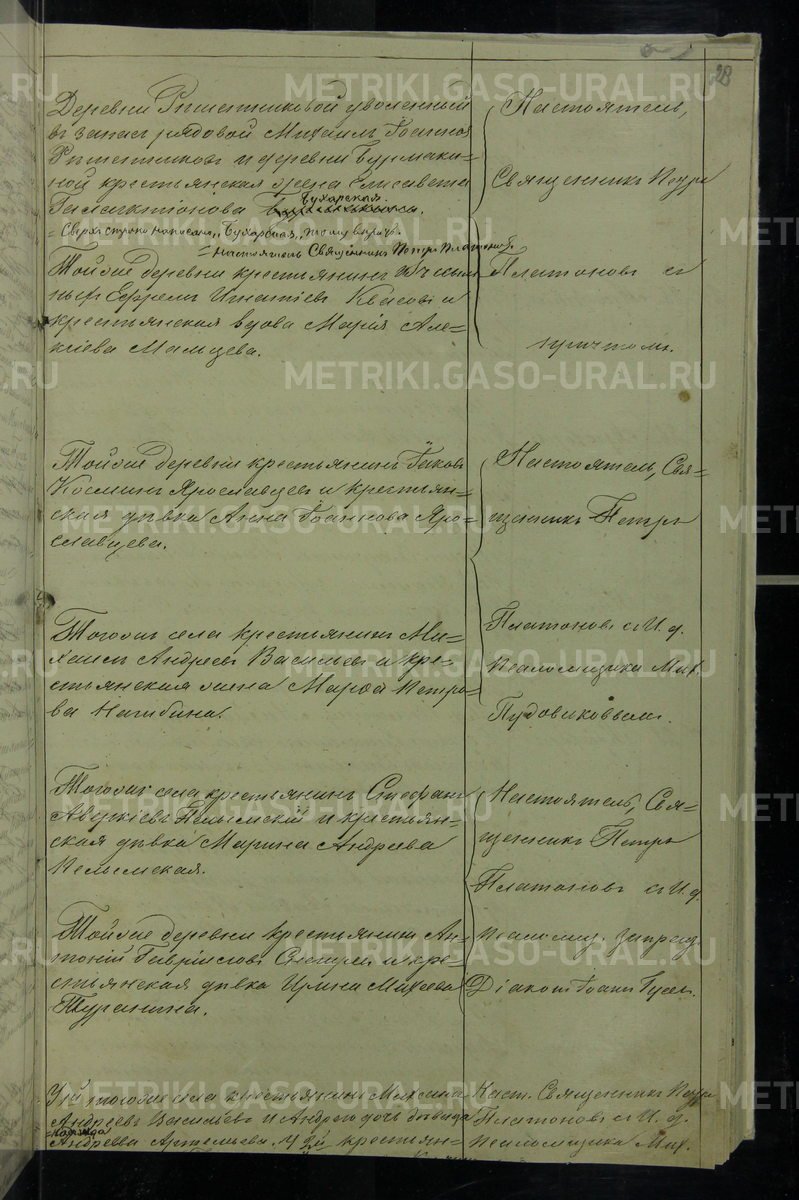 28
Деревни Решетниковой уволенный
въ запас рядовой Михаилъ Іоаннов
Решетников и деревни Бурмаки-
ной крестьянская жена Елисавета
Бухарская.
Галактіонова
Сверх строки написано „Бухарская„ тому вѣрить.
Настоятель Священникъ Петръ Платонов.
Тойже деревни крестьянинъ
Ефрем Игнатіев Квасов и
крестьянская вдова Марія Але-
ксіева Мальцева.
Тойже деревни крестьянинъ Іаков
Космин Ярославцев и крестьян-
ская дѣвка Анна Іоаннова Яро-
славцева.
Тогоже села крестьянин Ми-
хаилъ Андреев Васильев и кре-
стьянская жена Марѳа Петро-
ва Нагибина.
Тогоже села крестьянинъ Стефанъ
Авержіев Пелымскій и крестьян-
ская дѣвка Марина Андреева
Пелымская.
Тойже деревни крестьянин Ан-
тоній Гавріилов и кре-
стьянская дѣвка Ирина Михеева
Туранина.
У тогоже села крестьянинъ
Андреевъ Васильевъ и дочь
Андреева Артемьева. У крестьян-
Настоятель,
Священникъ Петръ
Платоновъ съ
причтомъ.
Настоятель, Свя-
щенникъ Петръ
Платоновъ съ И. д.
Псаломщика Мих.
Пудовиковымъ.
Настоятель, Свя-
щенникъ Петръ
Платоновъ съ И. д.
Псаломщ.
Діакон Іоанн
Наст. Священникъ Петръ
Платоновъ съ И. д.
Псаломщика Мих.
METRIKI.GASO-URAL.RU